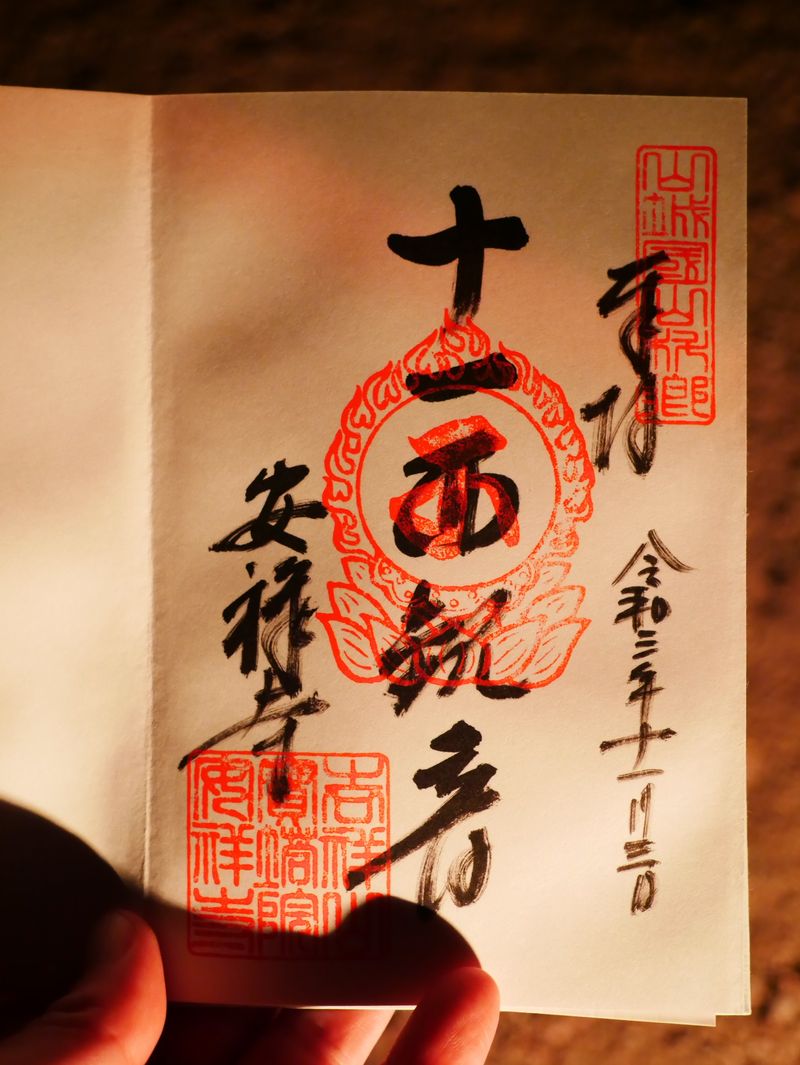 山城國山科郷
奉拝
令和三年十一月三日
十一面観音
安祥寺
吉祥山
寶塔院
安祥寺